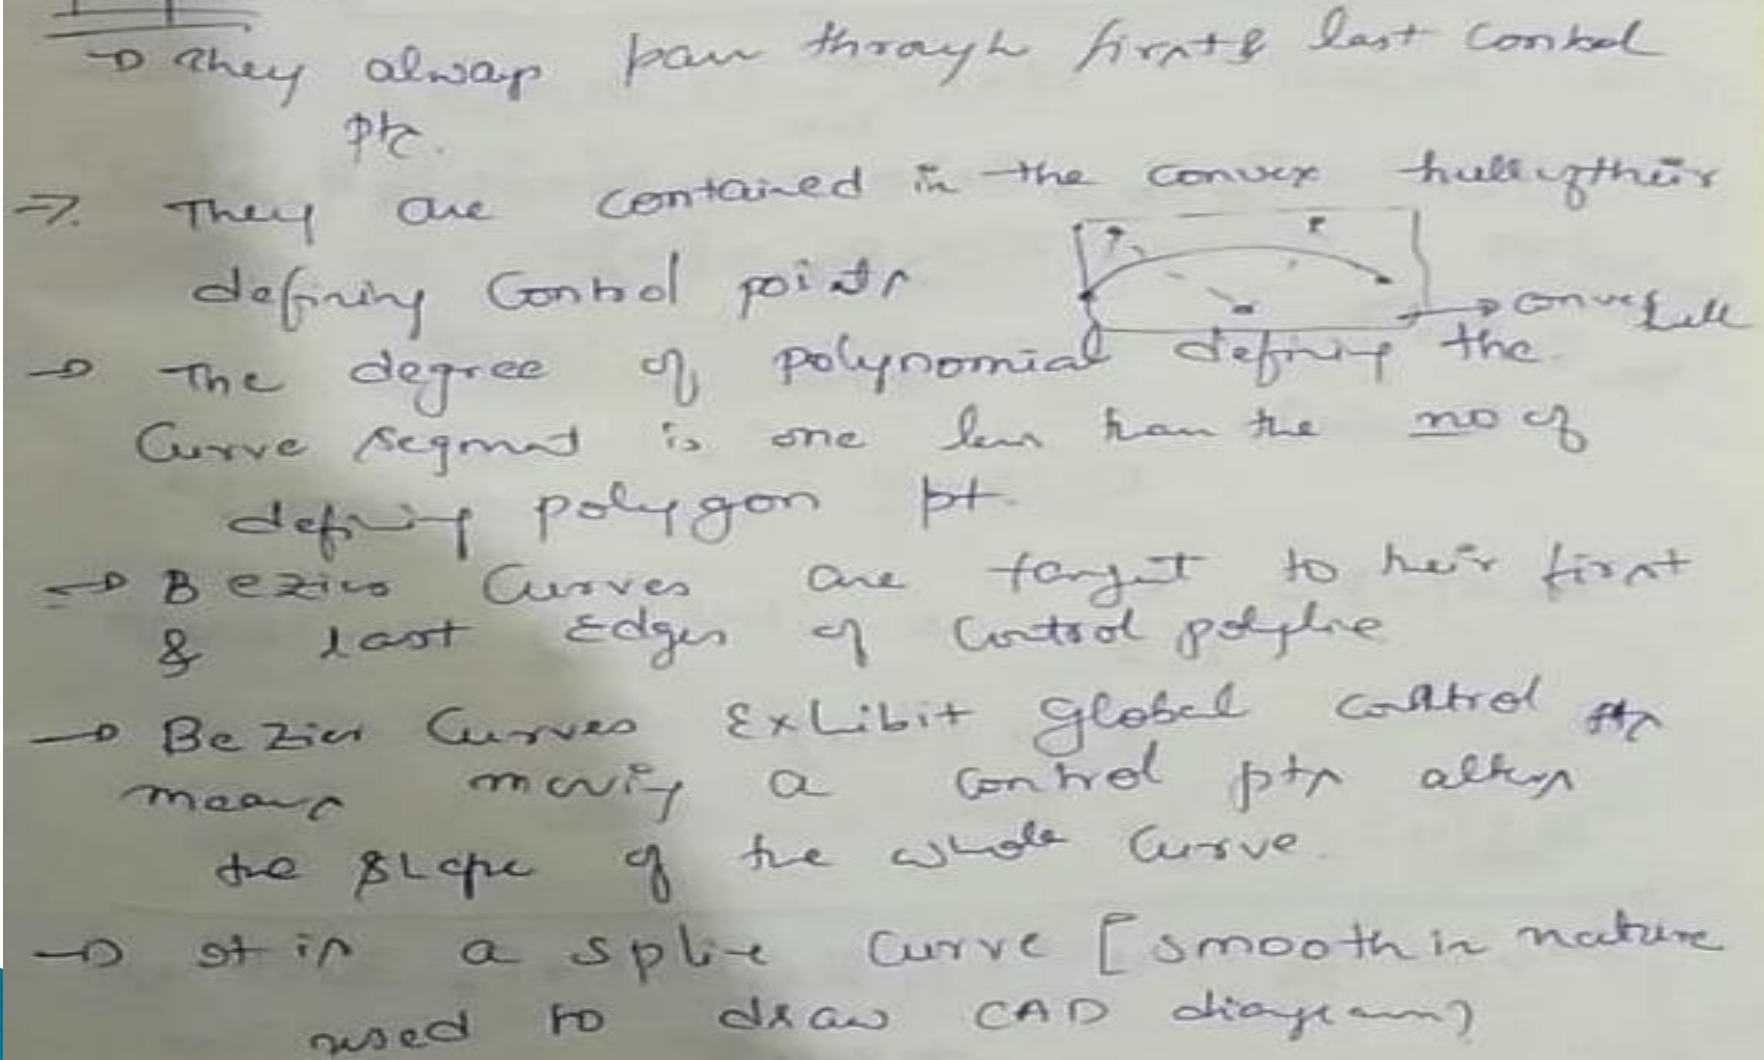 → They always pass through first & last control
pts.
→ They are contained in the convex hull of their
defining control points
→ convex hull
→ The degree of polynomial defining the
Curve segment is one less than the no of
defining polygon pt.
→ Bezier Curves are tangent to their first
& last Edges of Control polyline
→ Bezier Curves Exhibit global control pts
means moving a control pts alters
the shape of the whole curve.
→ It is a spline curve [smooth in nature
used to draw CAD diagram)